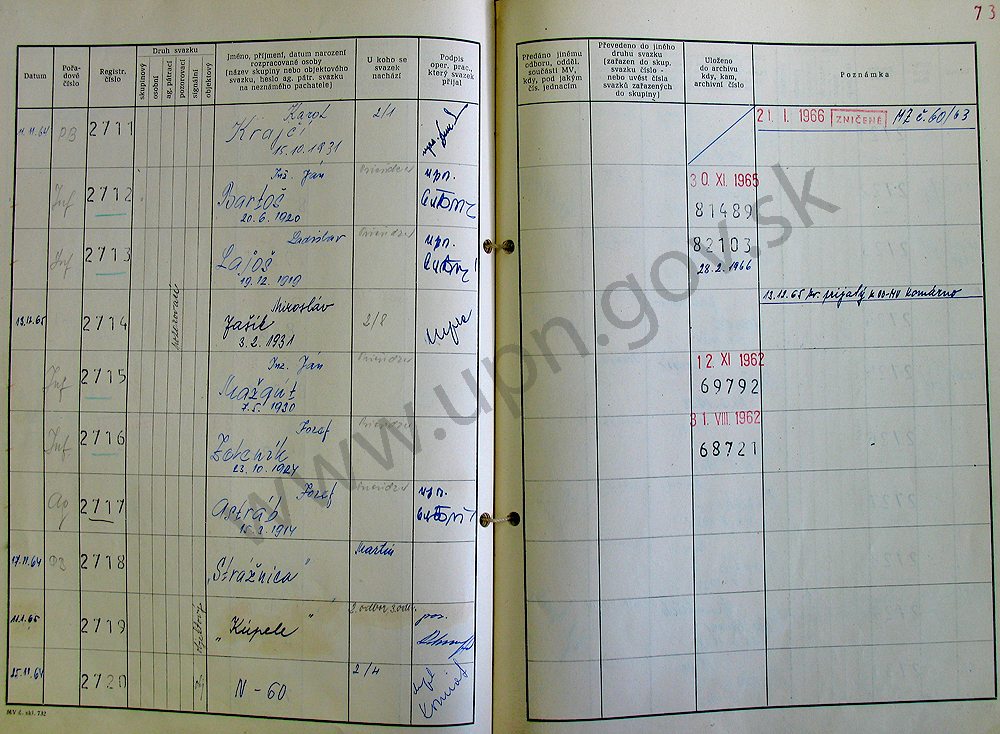 73
Datum
Pořa-
dové
číslo
Registr.
číslo
Druh svazku
skupinový
osobní
ag. pátrací
pozorovací
signální
objektový
Jméno, příjmení, datum narození
rozpracované osoby
(název skupiny nebo objektového
svazku, heslo ag. pátr. svazku
na neznámého pachatele)
U koho se
svazek
nachází
Podpis
oper. prac.,
který svazek
přijal
Předáno jinému
odboru, odděl.
součásti MV,
kdy, pod jakým
čís. jednacím
Převedeno do jiného
druhu svazku
(zařazen do skup.
svazku číslo -
nebo uvést čísla
svazků zařazených
do skupiny)
Uloženo
do archivu
kdy, kam,
archivní číslo
Poznámka
11.11.64 PB 2711 Karol 2/1
Krajčí
15.10.1931
21. I. 1966 ZNIČENÉ MZ č. 60/63
Inf 2712 Inž. Ján
Bartoš
20.6.1920
upn.
30. XI. 1965
81489
Inf 2713 Ladislav
Lajoš
19.12.1919
upn.
82103
28.2.1966
13.12.65 2714 pozorovací Miroslav 2/8
Jašík
3.2.1931
13.12.65 komárno
Inf 2715 Inž. Ján
Mažgút
7.5.1930
12. XI 1962
69792
Inf 2716 Jozef
23.10.1924
31. VIII. 1962
68721
Ag 2717 Jozef
Astráb
1914
upn.
17.11.64 2718 Martin
„Stražnica"
11.1.65 2719 objektový 2. odbor 3. odd.
„Kúpele"
25.11.64 2720 2/4
N - 60
MV č. skl. 732
www.upn.gov.sk